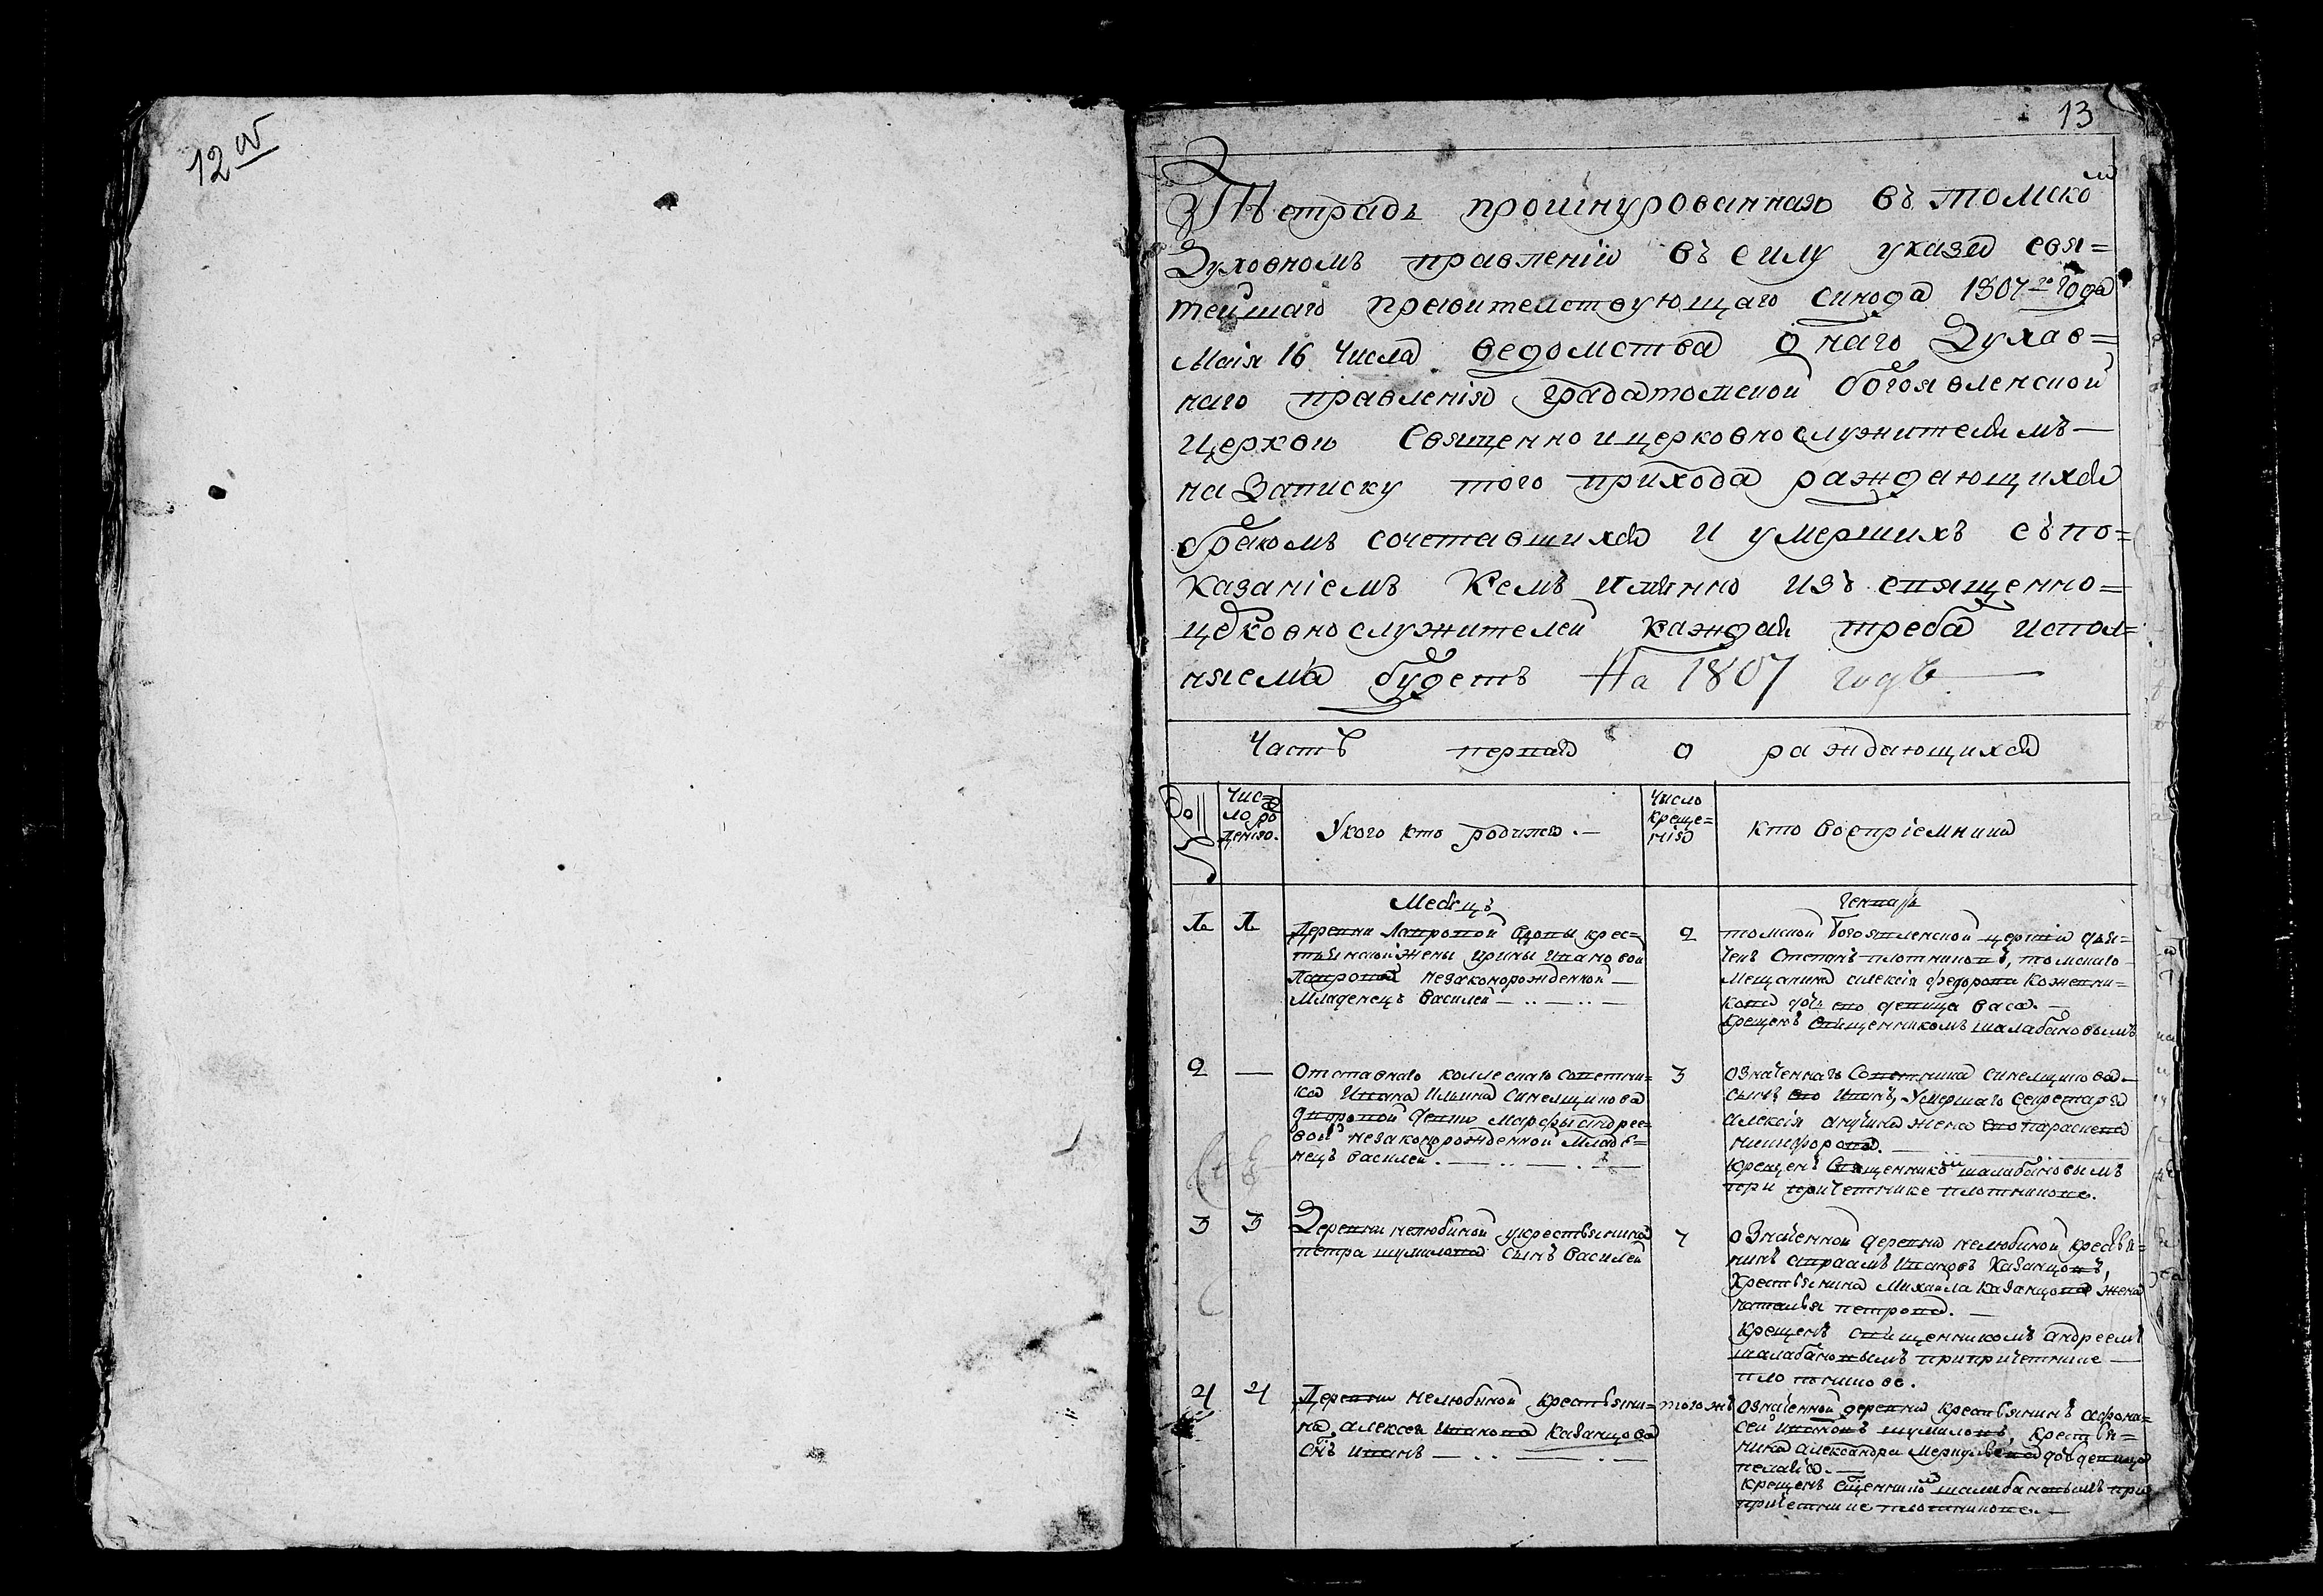 12 об
13
Тетрадь прошнурованная въ томском
Духовномъ правлении въ силу указа свя=
тейшаго правителствующаго синода 1807го года
Маія 16 числа ведомства онаго Духов=
наго правленія градатомской богоявленской
церкви Священно и церковнослужителямъ
на записку того прихода раждающихся
бракомъ сочетавшихся и умершихъ съ по=
казаніемъ кемъ имянно изъ священно=
церковнослужителей каждая треба испол=
няема будетъ На 1807 годъ
Часть первая о раждающихся
Чис=
ло ро
денія.
У кого кто родился.
Число
креще=
нія
кто восприемники
Месяцъ Генварь
1 1 Деревни Лавровой вдовы крес=
тьянской жены ирины ивановой
Лавровой незаконорожденной
Младенецъ василей
2 томской богоявленской церкви дья=
чекъ Степанъ плотниковъ, томскаго
Мещанина алексія федорова кожевни=
кова дочь его девица васа.
крещенъ священникомъ шалабановымъ
2 — Отставнаго коллескаго советни=
ка ивана ильина синелщикова
дворовой девки марфы андрее=
вой незаконорожденной младе=
нецъ василей.
3 означеннаго советника синелщикова
сынъ его иванъ, умершаго секретаря
алексія жена его параскева
никифорова.
крещенъ священником шалабановымъ
при причетнике плотникове.
3 3 Деревни нелюбиной у крестьянина
петра шумилова сынъ василей
7 означенной деревни нелюбиной кресьтя=
нинъ авраамъ ивановъ казанцовъ,
крестьянина михаила казанцова жена
наталья петрова.
крещенъ священникомъ андреемъ
шалабановымъ при причетнике
плотникове.
4 4 Деревни нелюбиной крестьяни=
на алексея иванова казанцова
снъ иванъ
того жъ означенной деревни крестьянинъ афона=
сей ивановъ шумиловъ, крестья=
нина александра девица
пелагія.
крещенъ сщенником шалабановымъ при
причетнике плотникове.